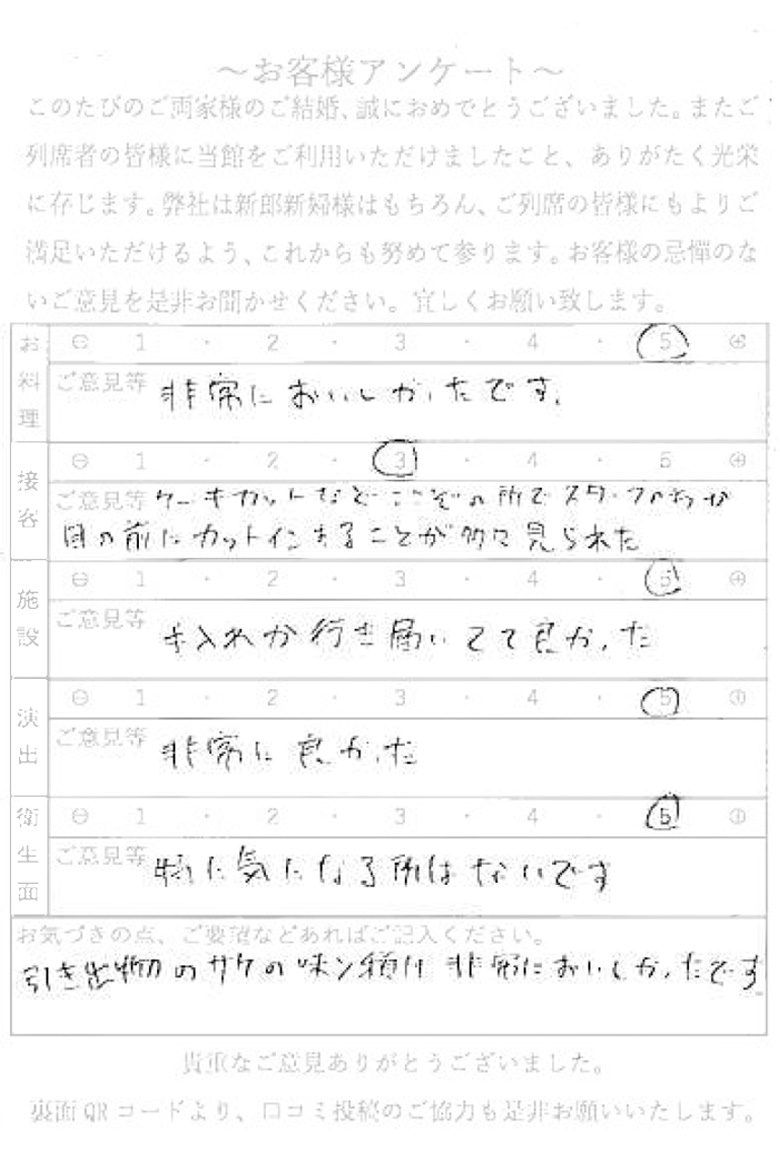 ～お客様アンケート～
このたびのご両家様のご結婚、誠におめでとうございました。またご
列席者の皆様に当館をご利用いただけましたこと、ありがたく光栄
に存じます。弊社は新郎新婦様はもちろん、ご列席の皆様にもよりご
満足いただけるよう、これからも努めて参ります。お客様の忌憚のな
いご意見を是非お聞かせください。宜しくお願い致します。
お料理
⊖ 1 ・ 2 ・ 3 ・ 4 ・ 5 ⊕
ご意見等 非常においしかったです。
接客
⊖ 1 ・ 2 ・ 3 ・ 4 ・ 5 ⊕
ご意見等 ケーキカットなどここぞの所でスタッフの方が
目の前にカットインすることが多々見られた
施設
⊖ 1 ・ 2 ・ 3 ・ 4 ・ 5 ⊕
ご意見等 手入れが行き届いてて良かった
演出
⊖ 1 ・ 2 ・ 3 ・ 4 ・ 5 ⊕
ご意見等 非常に良かった
衛生面
⊖ 1 ・ 2 ・ 3 ・ 4 ・ 5 ⊕
ご意見等 特に気になる所はないです
お気づきの点、ご要望などあればご記入ください。
引き出物のサケの味ソ漬け非常においしかったです
貴重なご意見ありがとうございました。
裏面QRコードより、口コミ投稿のご協力も是非お願いいたします。